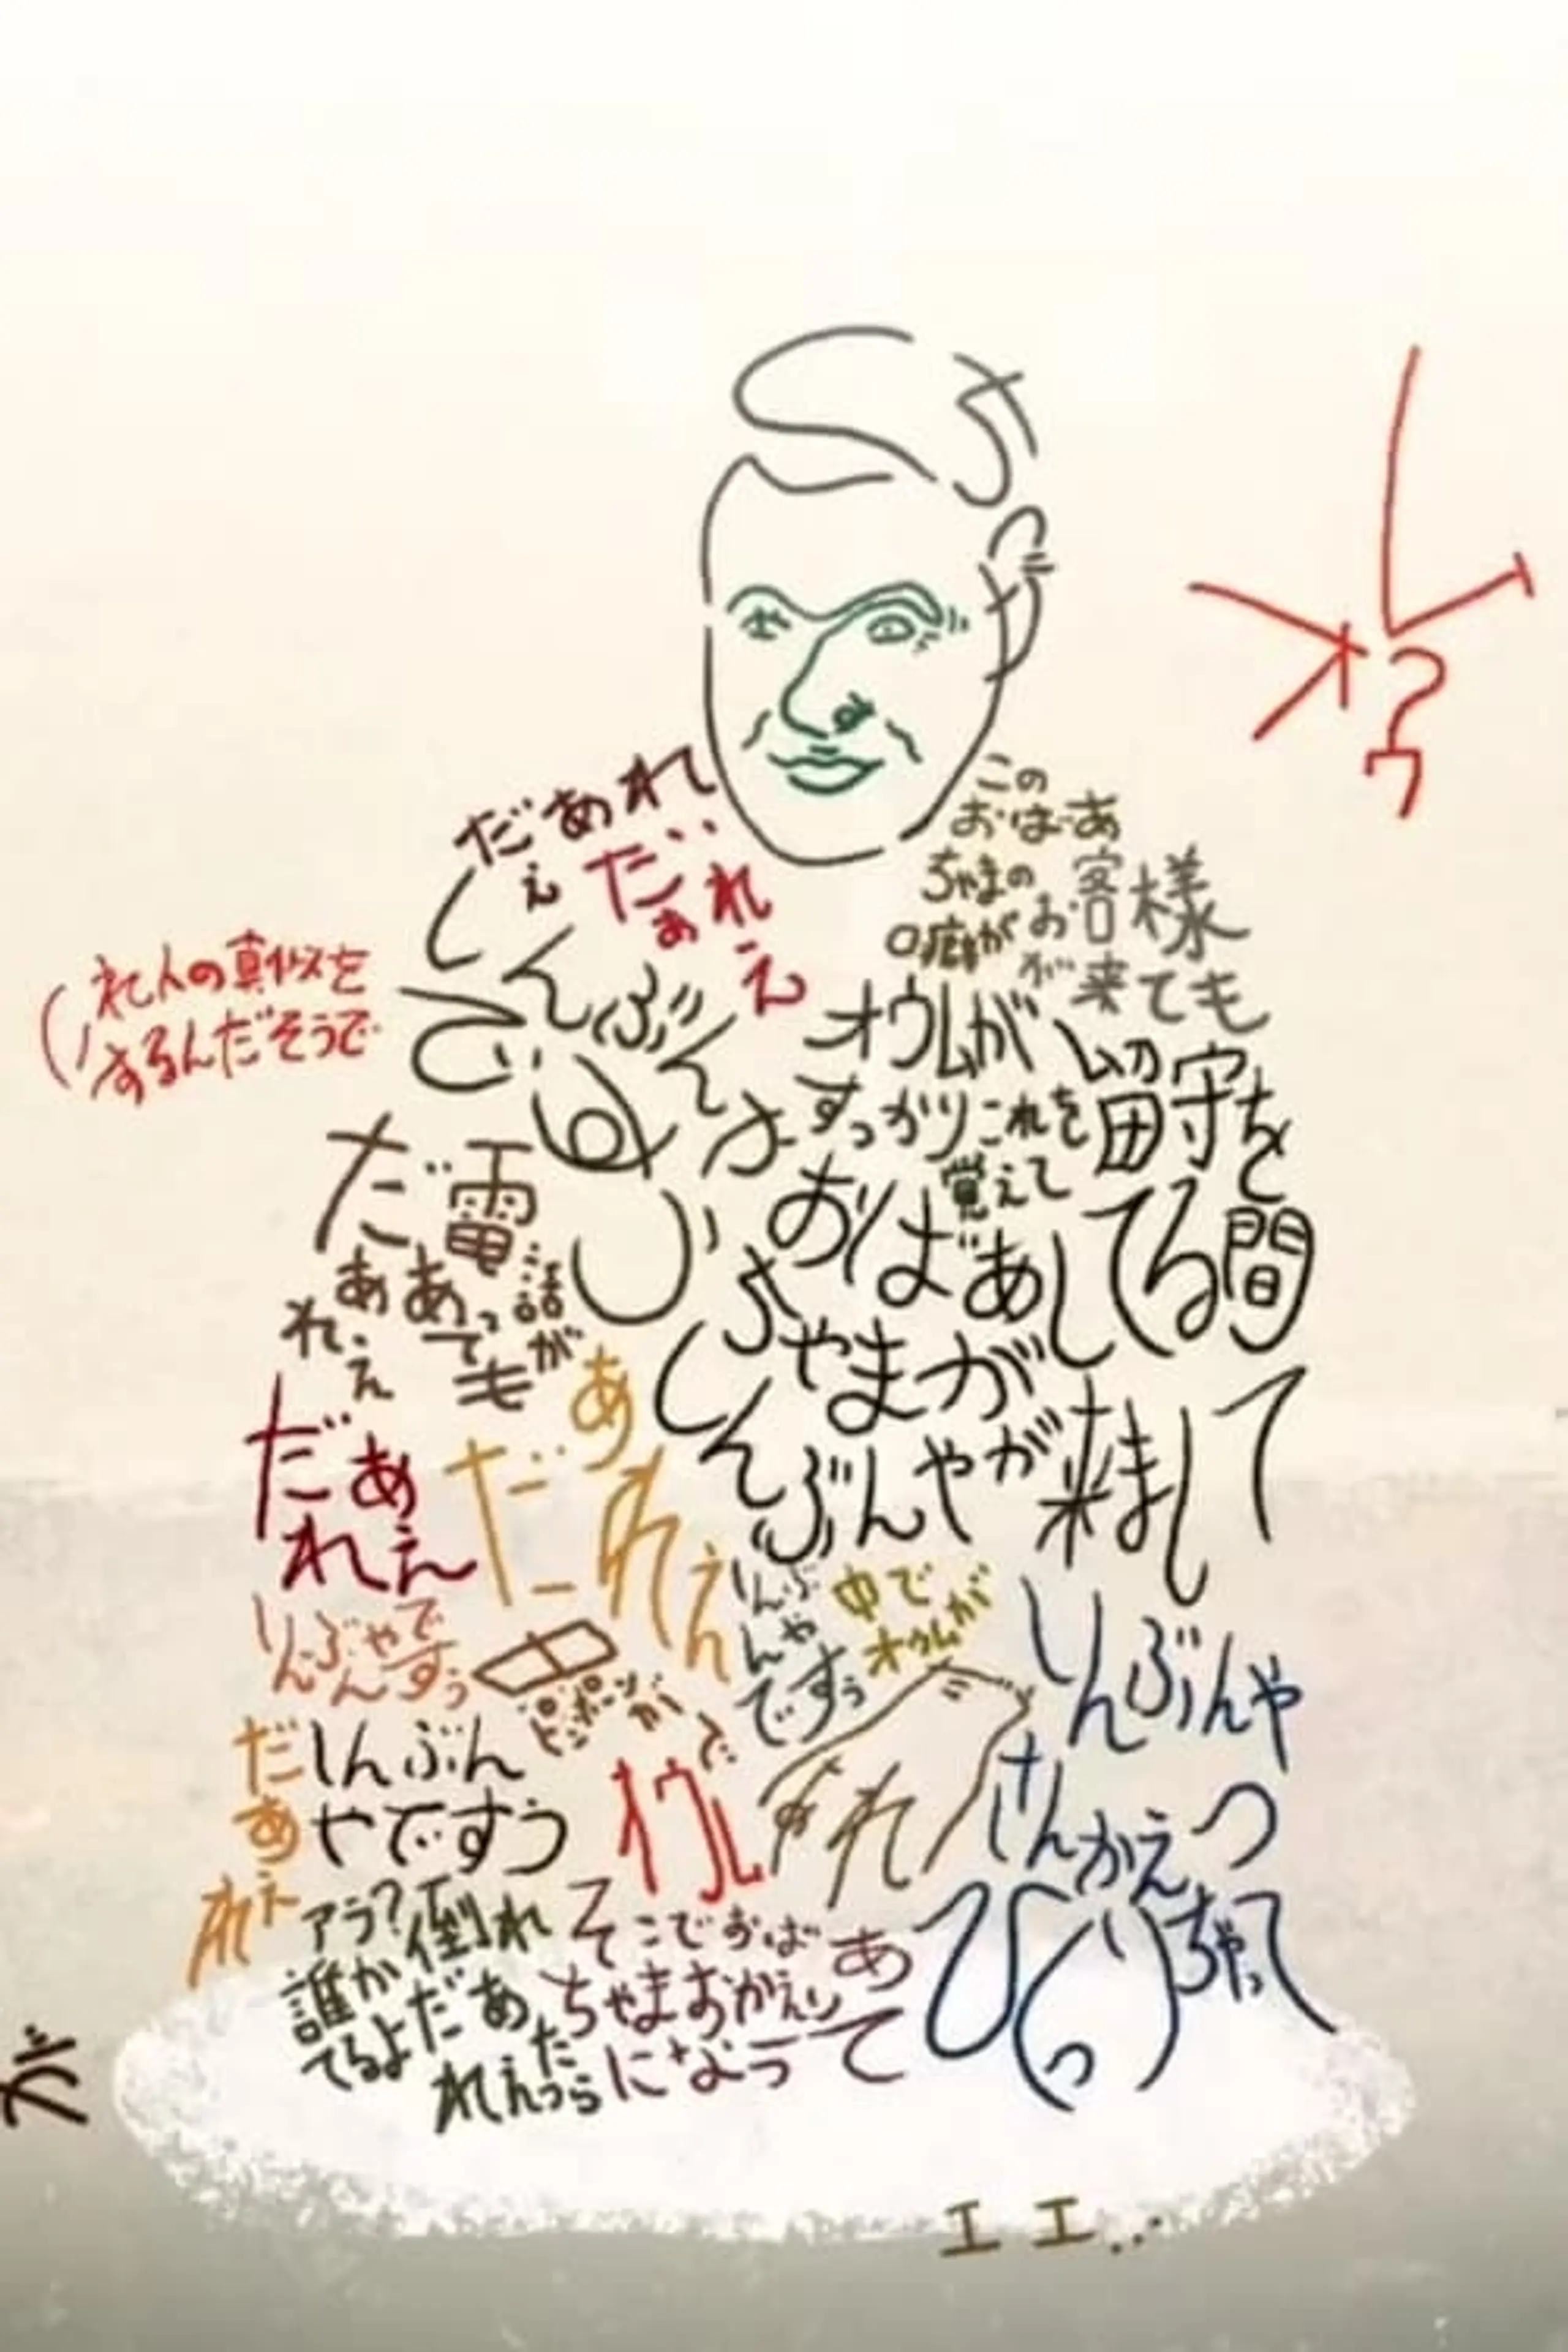 オウム?
(これ人の真似を
するんだそうで
この
おばあ
ちゃまの
口癖が
お客様
が来ても
電話が
あっても
だあれぇ
だぁれぇ
オウムが
すっかりこれを
覚えて
おばあ
ちゃまが
留守を
してる間
しんぶんやが来まして
しんぶんやでぇすぅ
だあれぇ
だぁれぇ
だあれぇ
しんぶんやですぅ
ピンポーンが
しんぶんやですぅ
中で
オウムが
だあれぇ
しんぶん
やですぅ
オウム
が
しんぶんや
さん
ひっくりかえっちゃって
そこでおばあ
ちゃまおかえり
になって
アラ?
誰か倒れ
てるよだあ
れぇったら
が
エエ..